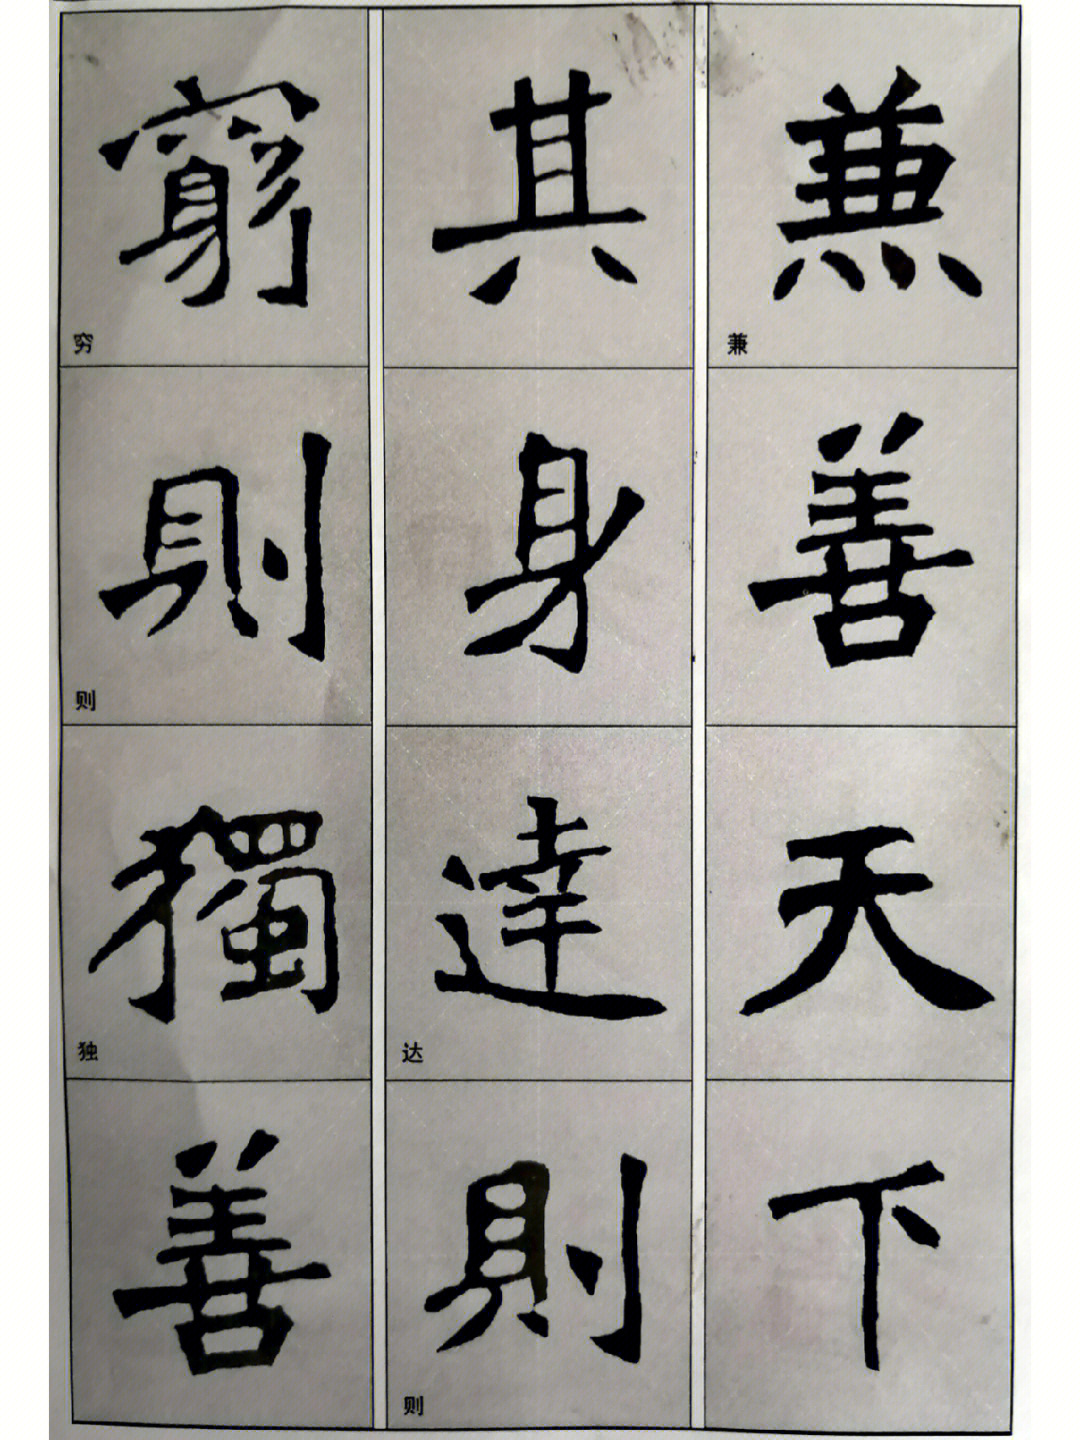 窮則獨善
穷
则
独
其身達則
达
则
兼善天下
兼